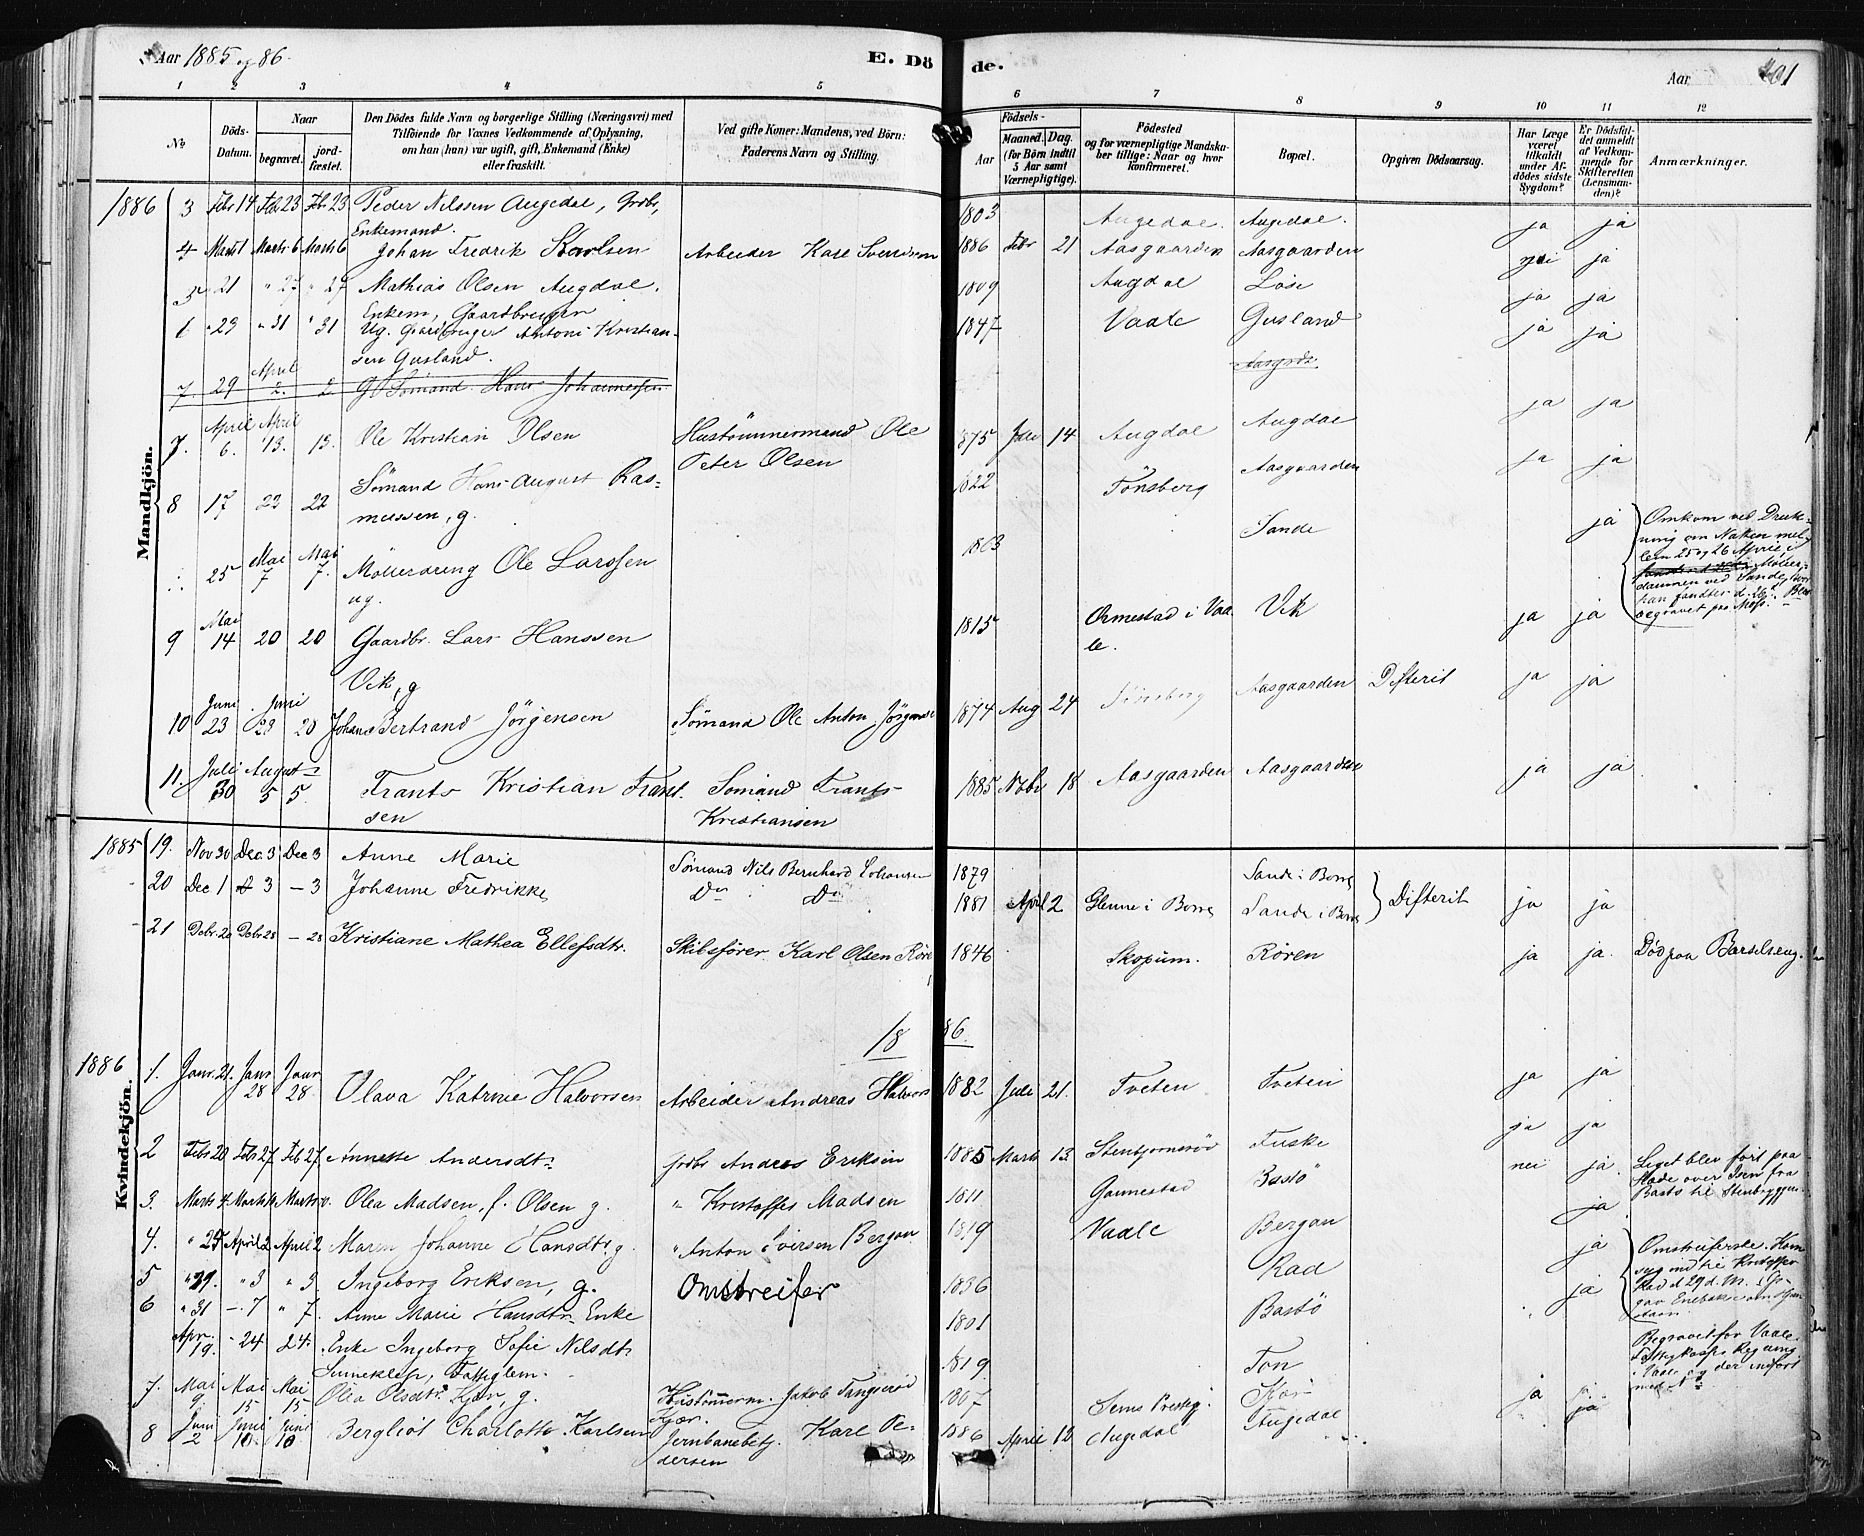 Aar 1885 og 86.
E. Döde.
Aar 401
1 2 3 4 5 6 7 8 9 10 11 12
№
Döds-Datum.
Naar
begravet.
jordfæstet.
Den Dödes fulde Navn og borgerlige Stilling (Næringsvei) med
Tilföiende for Voxnes Vedkommende af Oplysning,
om han (hun) var ugift, gift, Enkemand (Enke)
eller fraskilt.
Ved gifte Koner: Mandens, ved Börn:
Faderens Navn og Stilling.
Födsels-
Aar
Maaned. Dag.
(for Börn indtil
5 Aar samt
Værnepligtige).
Födested
og for værnepligtige Mandska-
ber tillige: Naar og hvor
Konfirmeret.
Bopæl.
Opgiven Dödsaarsag.
Har Læge
været
tilkaldt
under Af-
dødes sidste
Sygdom?
Er Dödsfal-
det anmeldt
af Vedkom-
mende for
Skifteretten
(Lensman-
den)?
Anmærkninger.
Mandkjön.
1886 3 Febr 14 Feb 23 Feb 23 Peder Nilssen Augedal, Grdbr, 1803 Augedal. Augedal. ja ja
Enkemand.
4 Marts 1 Marts 6 Marts 6 Johan Fredrik Karlsen Arbeider Karl Svendsen 1886 Febr 21 Aasgaarden Aasgaarden nei ja
5 21 " 27 " 27 Mathias Olsen Augdal. 1809 Augdal ja ja
Enkem, Gaardbruger
" 29 " 31 " 31 Ug. Gaardbruger Antoni Kristian- 1847 Vaale Gusland ja ja
sen Gusland.
7. 29 April 2. 2. G. Sømand Hans Johannessen Aasgrdn
7. April 6. April 13. 13. Ole Kristian Olsen Hustömmermand Ole 1875 Juli 14 Augdal Augdal ja ja
Peter Olsen
8 17 22 22 Sømand Hans August Ras- 1822 Tönsberg Aasgaarden ja ja
mussen, g.
25 Mai 7 Mai 7. Møllerdreng Ole Larssen 1863 Sande ja
ug.
Omkom ved Druk-
ning om Natten mel-
lem 25 og 26 April, i
Møller-
dammen ved Sande, hvor
han fandtes d. 26.
begravet paa
9 Mai 14 20 20 Gaardbr. Lars Hanssen 1815 Ormestad i Vaa- Vik ja ja
le.
Vik, g
10 Juni 23 Juni 28 20 Johan Bertrand Jörgensen Sømand Ole Anton Jörgense 1874 Aug 24 Tönsberg Aasgaarden Difterit ja ja
11. Juli 30 August 5 5. Frants Kristian Frant- Sømand Frants 1885 Novbr 18 Aasgaarden Aasgaarden ja ja
sen Kristiansen
Kvindekjön.
1885 19. Nov 30 Dec 3 Dec 3 Anne Marie Sømand Nils Bernhard Johansen 1879 Sande i Borre
20 Dec 1 d 3 – 3 Johanne Fredrikke Do Do 1881 April 2 Glenne i Borre Sande i Borre Difterit ja ja
21 Debr. 20 Debr 28 – 28 Kristiane Mathea Ellefsdtr. Skibsfører Karl Olsen Röre 1846 Skopum. Rören ja ja. Död paa Barselseng.
1886.
1886 1. Janr. 21. Janr 28 Janr 28. Olava Katrine Halvorsen Arbeider Andreas Halvors 1882 Juli 21. Tveten Tveten ja ja
2 Febr 20 Febr 27 Feb 27 Annette Andersdtr. grdbr Andres Eriksen 1885 Marts 13. Stenbjørnsrød Fuske ja ja
3. Marts 4. Marts Marts Olea Madsen, f. Olsen g. " Kristoffer Madsen 1811 Gannestad Bastö nei ja
Liget blev fört paa
Slæde over Isen fra
Bastö til Stenbryggen.
4. " 25 April 2 April 2 Maren Johanne Hansdtr, g. " Anton Iversen Bergan 1819 Vaale Bergan ja
5 " 29. " 3 " 3. Ingeborg Eriksen, g. Omstreifer 1836 Rad ja
Omstreiferske. Kom
syg ind til Kristoffer
Rad d 29 d. M.
6 " 31 – 7 " 7. Anne Marie Hansdtr. Enke 1801 Bastö ja
Apr. 19. – 24 24. Enke Ingeborg Sofie Nilsdtr 1819 Ton
Fattiglem.
Begravet for Vaale
Fattigkasses Regning
i Vaale, og der indført
med No
7. Mai 9 Mai 15 Mai 15 Olea Olsdtr. Kjær, g. Hustömmerm. Jakob 1807 Sems Prestegj. Kjær ja ja
Kjær.
8 Juni 2 Juni 10. Juni 10 Bergliot Charlotte Karlsen Jernbanebetj. Karl Pe- 1886 April 12 Augedal Augedal ja
dersen